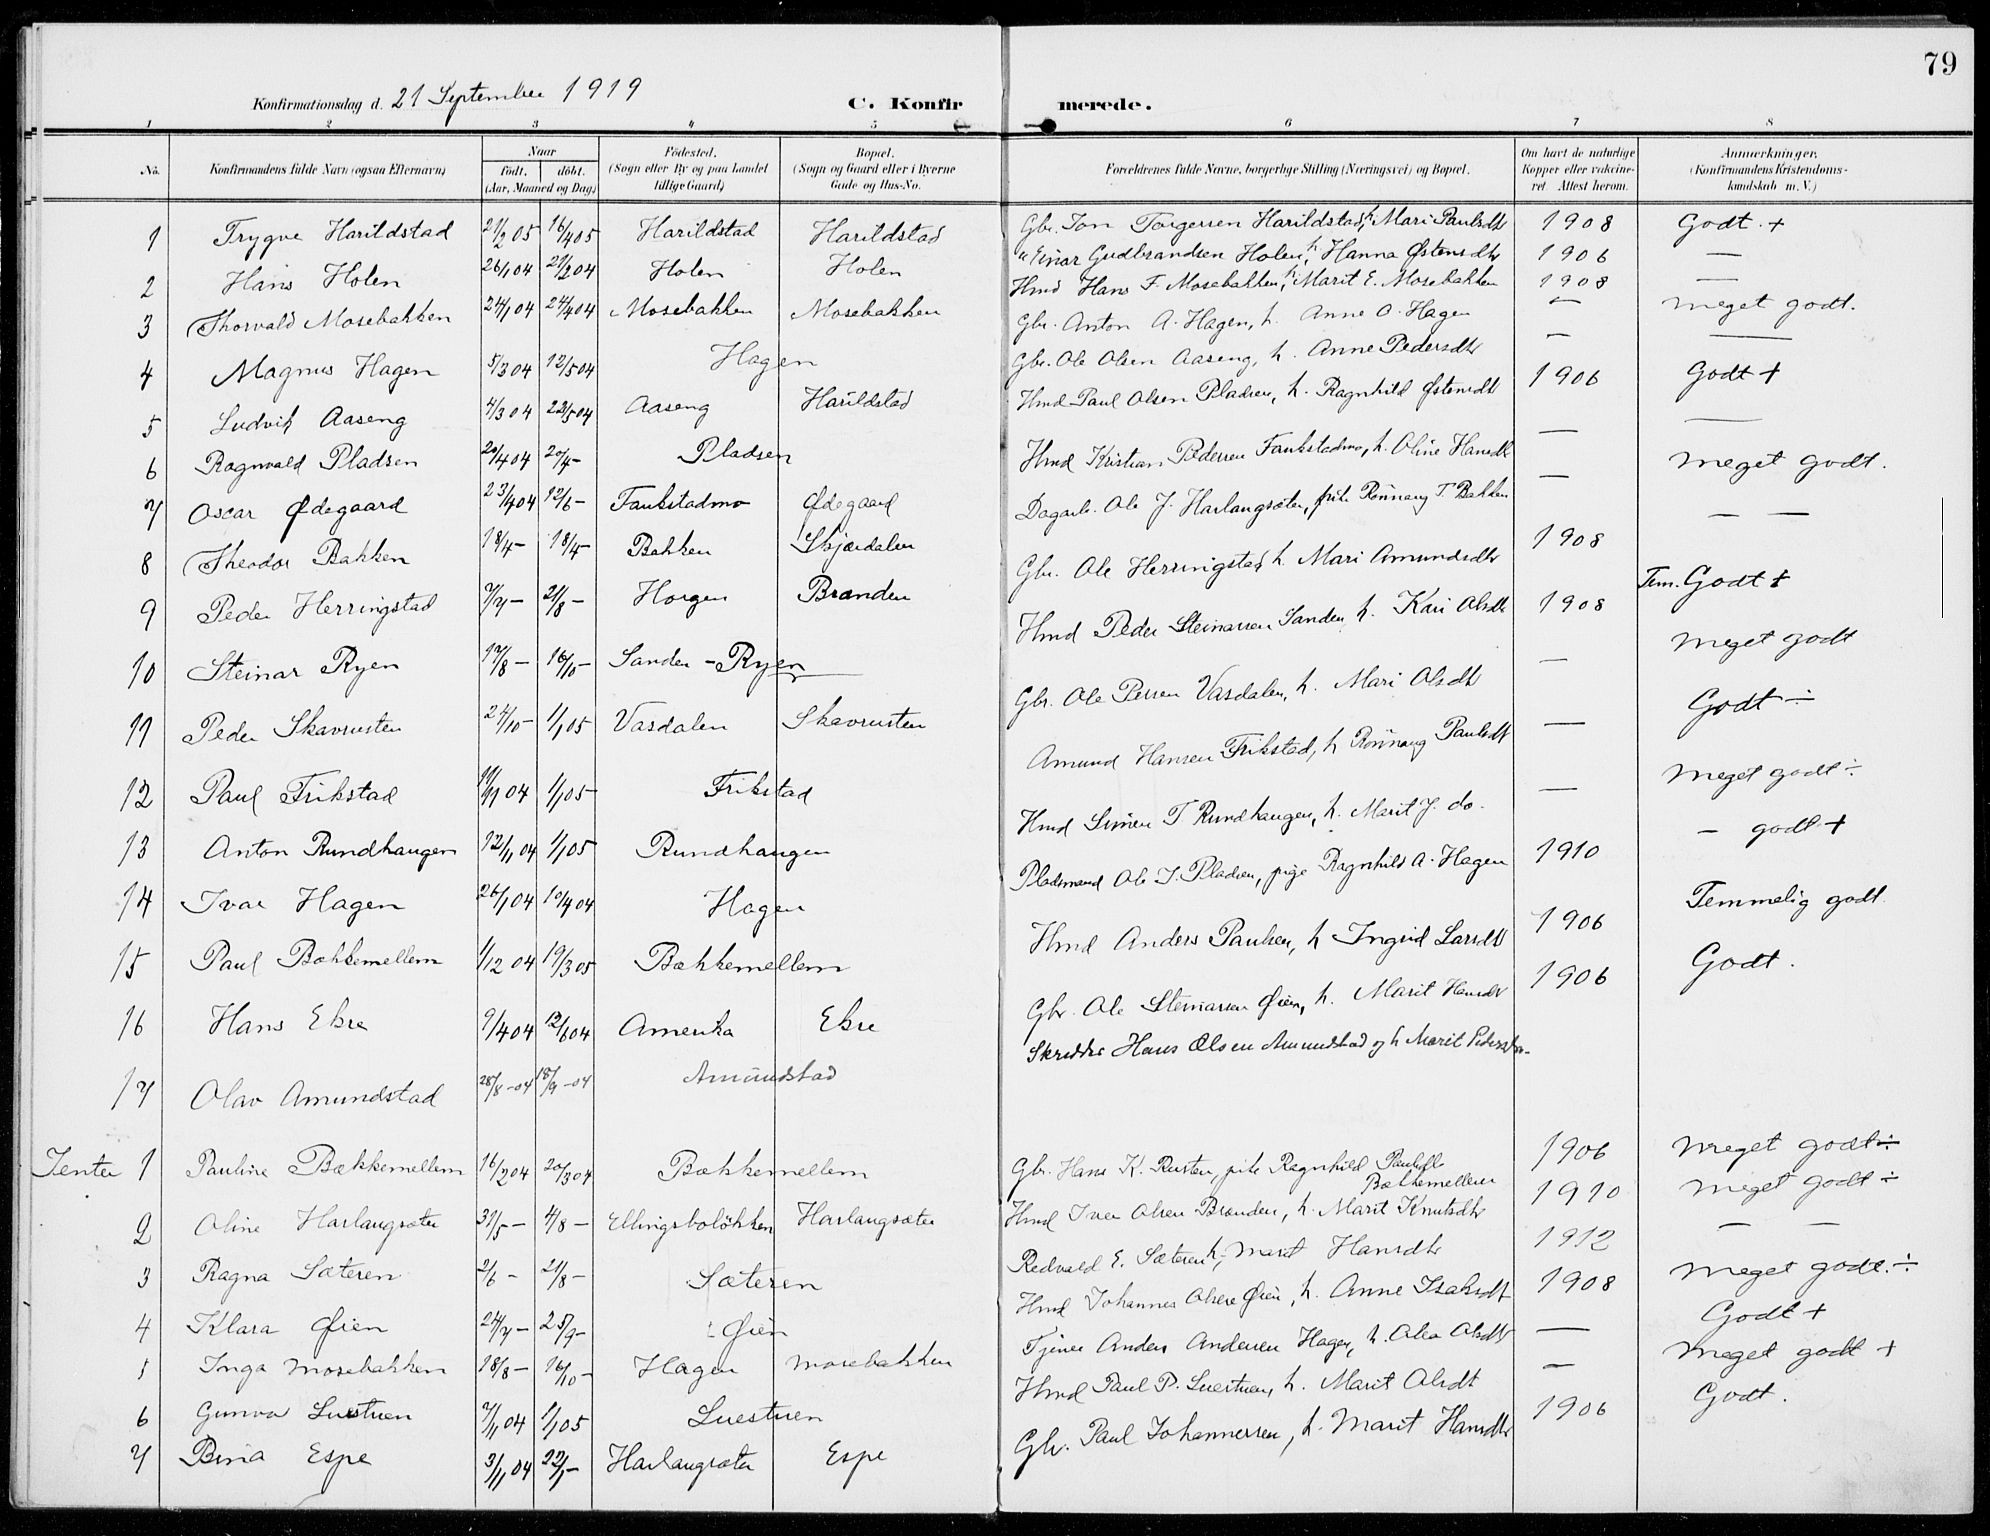 79
Konfirmationsdag d. 21 September 1919 C. Konfirmerede.
1 2 3 4 5 6 7 8
No. Konfirmandens fulde Navn (ogsaa Efternavn) Naar født. døbt. (Aar, Maaned og Dag) Födested. (Sogn eller By og paa Landet tillige Gaard) Bopæl. (Sogn og Gaard eller i Byerne Gade og Hus-No. Forældrenes fulde Navne, borgerlige Stilling (Næringsvei) og Bopæl. Om havt de naturlige Kopper eller vaccineret. Attest herom. Anmærkninger. (Konfirmandens Kristendomskundskab m. V.)
1 Trygve Harildstad 21/2 05 16/4 05 Harildstad Harildstad Gbr. Jon Torgersen Harildstad, h. Mari Paulsdtr 1908 Godt. +
2 Hans Holen 26/1 04 21/2 04 Holen Holen " Einar Gudbrandsen Holen, h. Hanna Østensdtr 1906 —
3 Thorvald Mosebakken 24/1 04 24/4 04 Mosebakken Mosebakken Hmd Hans F. Mosebakken, h. Marit E. Mosebakken 1908 —
4 Magnus Hagen 5/3 04 12/5 04 Hagen Gbr. Anton A. Hagen, h. Anne O. Hagen — Meget godt.
5 Ludvik Aaseng 4/3 04 22/5 04 Aaseng Harildstad Gbr. Ole Olsen Aaseng, h. Anne Pedersdtr — —
6 Ragnvald Pladsen 20/4 04 20/4 – Pladsen Hmd Paul Olsen Pladsen, h. Ragnhild Østensdtr 1906 Godt +
7 Oscar Ødegaard 23/4 04 12/6 – Faukstadmo Ødegaard Hmd Kristian Pedersen Faukstadmo, h. Oline Hansdtr — —
8 Theodor Bakken 18/4 – 18/4 – Bakken Skjærdalen Dagarb. Ole J. Harlangsæter, pike Rönnaug T. Bakken — Meget godt.
9 Peder Herringstad 7/7 – 21/8 – Horgen Brænden Gbr. Ole Herringstad h. Mari Amundsdtr 1908 — —
10 Steinar Ryen 17/8 – 16/10 – Sanden – Ryen Hmd Peder Steinarsen Sanden, h. Kari Olsdtr 1908 Tem. Godt +
11 Peder Skavrusten 24/10 – 1/1 05 Vasdalen Skavrusten Gbr. Ole Persen Vasdalen, h. Mari Olsdtr — Meget godt
12 Paul Frikstad 11/11 04 1/1 05 Frikstad Amund Hansen Frikstad, h Rönnaug Paulsdt — Godt ÷
13 Anton Rundhaugen 12/11 04 1/1 05 Rundhaugen Hmd Simen T Rundhaugen, h. Marit J. do. — Meget godt ÷
14 Ivar Hagen 26/1 04 10/4 04 Hagen Pladsmand Ole I. Pladsen, pige Ragnhild A. Hagen 1910 — godt +
15 Paul Bækkemellem 1/12 04 19/3 05 Bækkemellem Hmd Anders Paulsen, h Ingrid Larsdtr 1906 Temmelig godt.
16 Hans Ekre 9/4 04 12/6 04 Amerika Ekre Gbr. Ole Steinarsen Øien, h. Marit Hansdtr 1906 Godt.
17 Olav Amundstad 28/8 – 04 18/9 – 04 Amundstad Skredder Hans Olsen Amundstad og h Marit Pedersdtr.
Jenter 1 Pauline Bækkemellem 16/2 04 20/3 04 Bækkemellem Gbr. Hans K. Rusten, pike Ragnhild Paulsdtr Bækkemellem 1906 Meget godt ÷
2 Oline Harlangsæter 31/5 – 4/8 – Ellingsbolökken Harlangsæter Hmd Iver Olsen Brænden, h. Marit Knutsdtr 1910 Meget godt ÷
3 Ragna Sæteren 2/6 – 21/8 – Sæteren Redvald E. Sæteren, h. Marit Hansdtr 1912 — —
4 Klara Øien 24/7 – 25/9 – Øien Hmd Johannes Olsen Øien, h. Anne Isaksdt 1908 Meget godt. ÷
5 Inga Mosebakken 18/8 – 16/10 – Hagen Mosebakken Tjener Anders Andersen Hagen, h. Olea Olsdtr — Godt +
6 Gunvor Luestuen 7/11 04 1/1 05 Luestuen Hmd Paul P. Luestuen, h. Marit Olsdt — Meget godt +
7 Bina Espe 3/11 04 22/1 – Harlangsæter Espe Gbr. Paul Johannessen, h. Marit Hansdtr 1906 Godt.